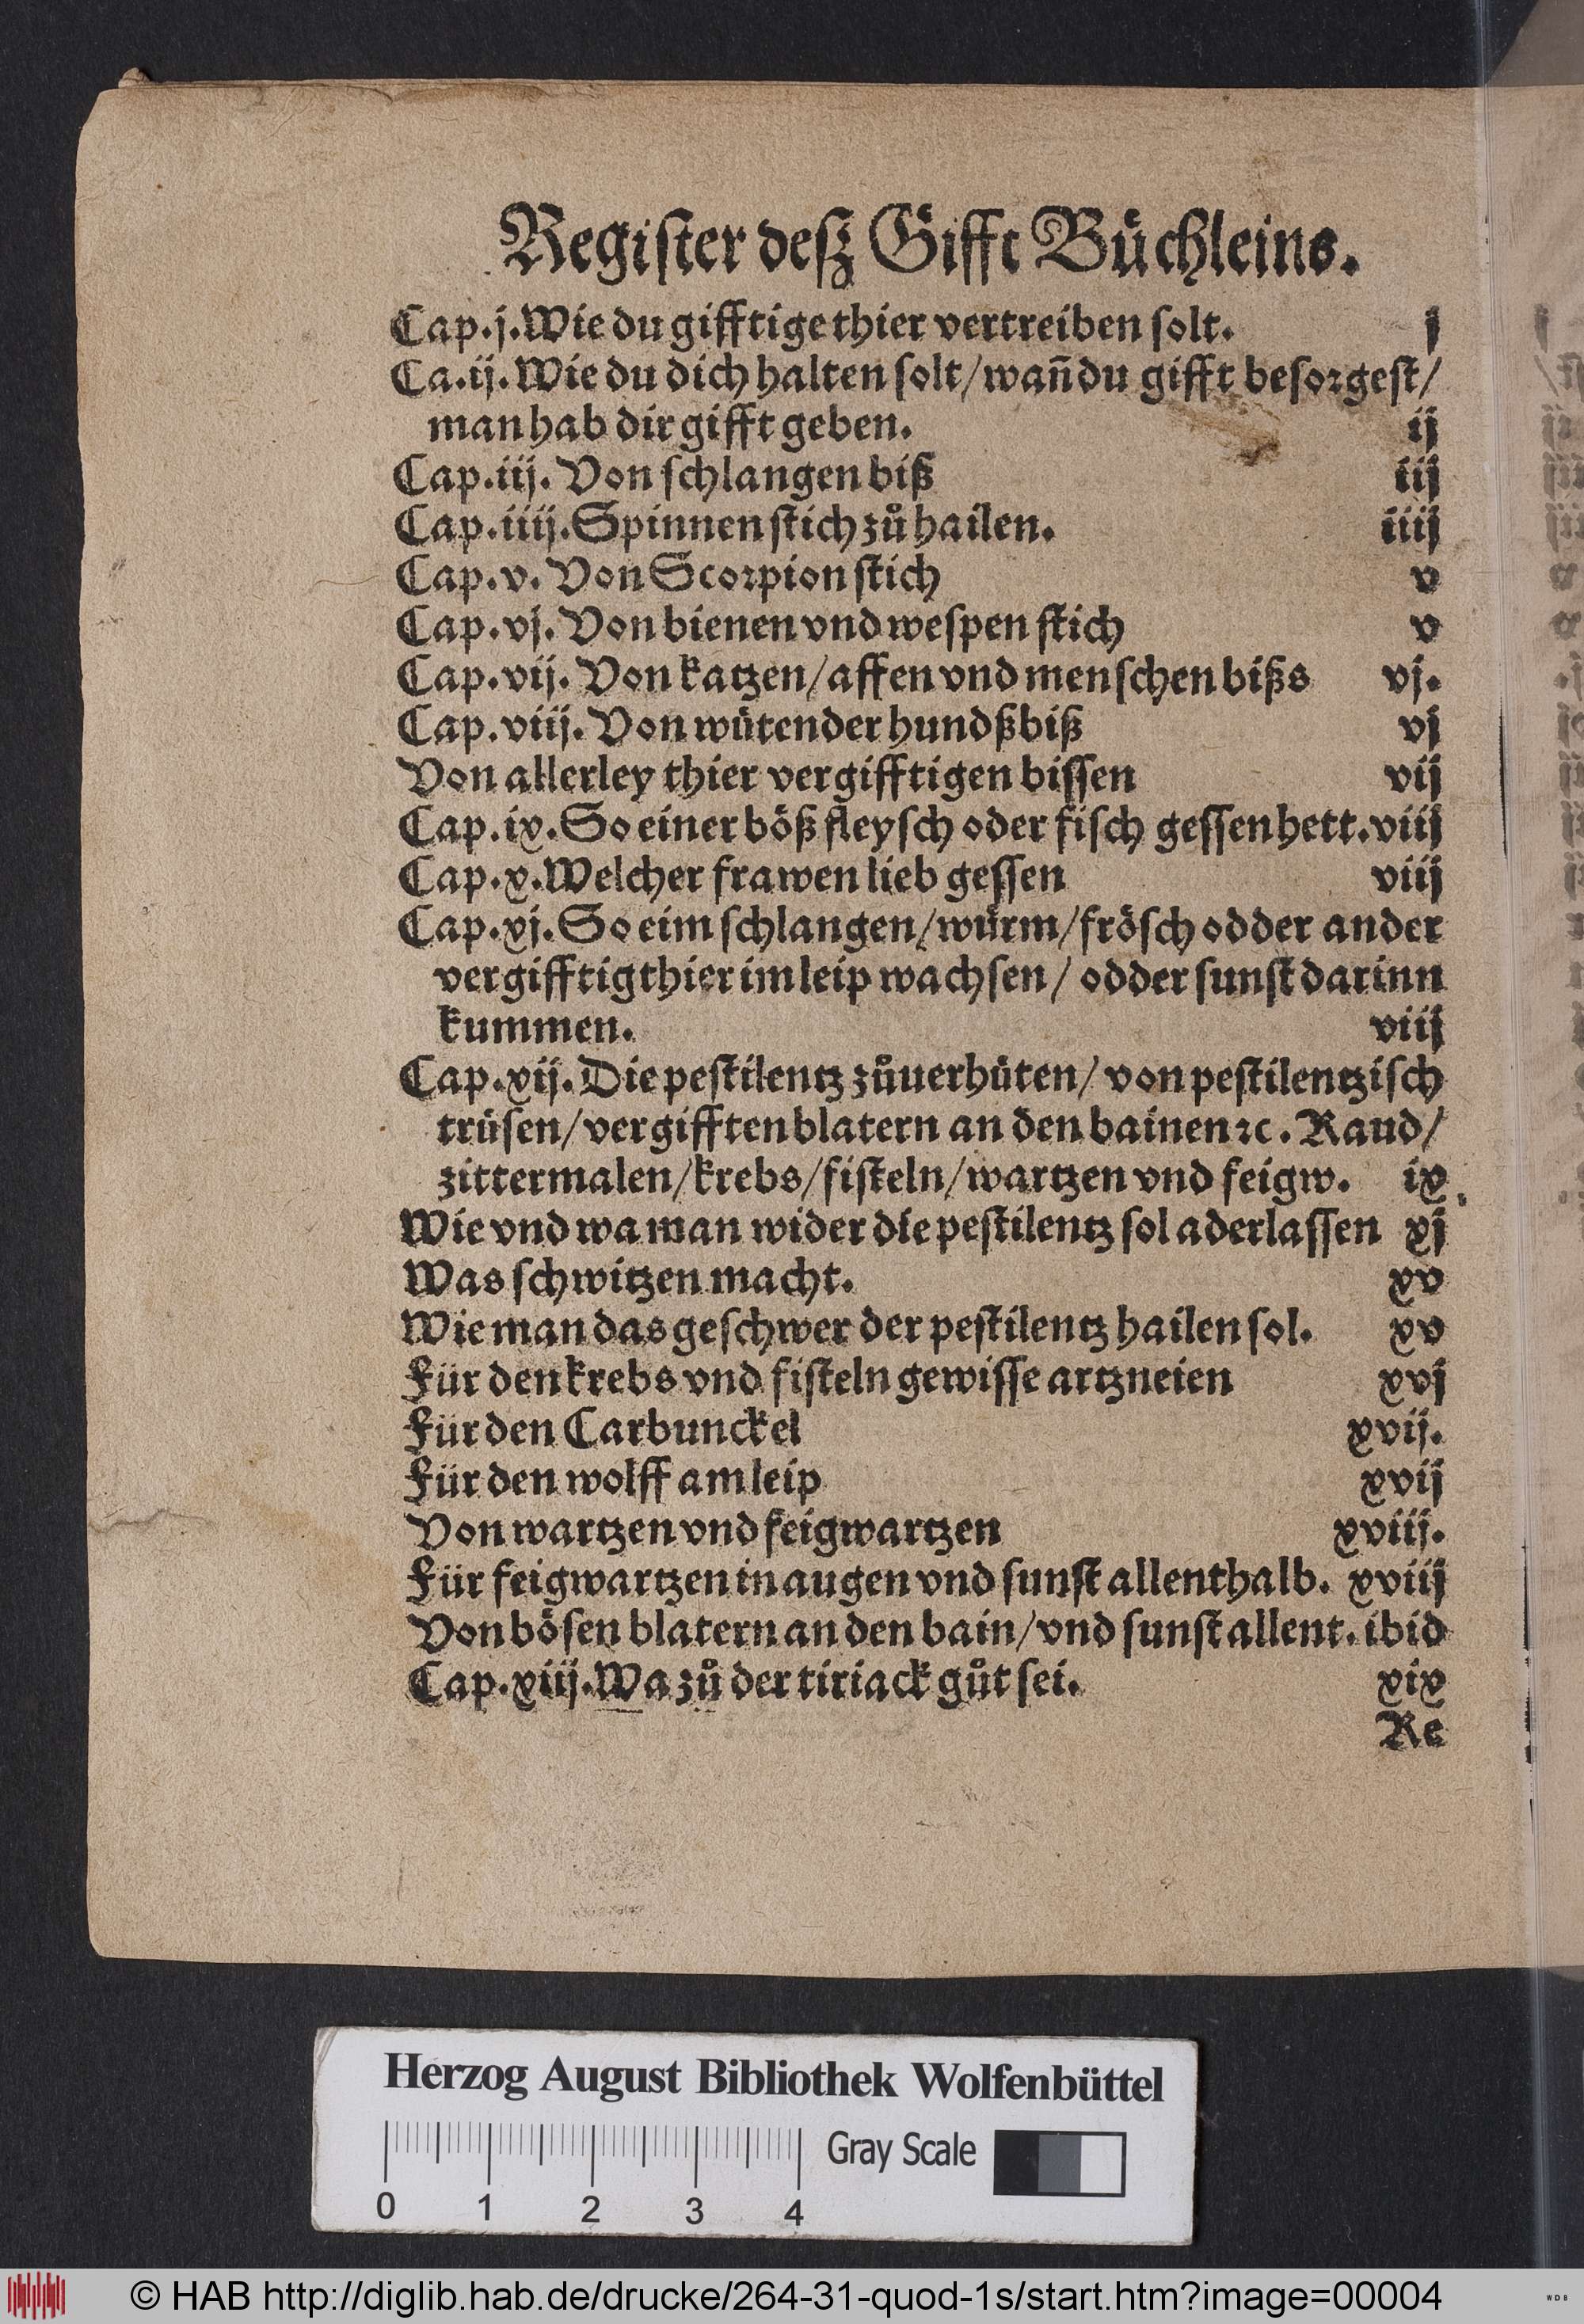 Regiſter deſz Gifft Bůchleins.
Cap.j. Wie du gifftige thier vertreiben ſolt. j
Ca.ij. Wie du dich halten ſolt/wañ du gifft beſorgeſt/
man hab dir gifft geben. ij
Cap.iij. Von ſchlangen biß iij
Cap.iiij. Spinnen ſtich zů hailen. iiij
Cap.v. Von Scorpion ſtich v
Cap.vj. Von bienen vnd weſpen ſtich v
Cap.vij. Von katzen/affen vnd menſchen bißs vj.
Cap.viij. Von wütender hundßbiß vj
Von allerley thier vergifftigen biſſen vij
Cap.ix. So einer böß fleyſch oder fiſch geſſen hett. viij
Cap.x. Welcher frawen lieb geſſen viij
Cap.xj. So eim ſchlangen/würm/fröſch odder ander
vergifftig thier im leip wachſen/ odder ſunſt darinn
kummen. viij
Cap.xij. Die peſtilentz zůuerhüten/ von peſtilentziſch
trüſen/vergifften blatern an den bainen ꝛc. Raud/
zittermalen/krebs/fiſteln/wartzen vnd feigw. ix
Wie vnd wa man wider die peſtilentz ſol aderlaſſen xj
Was ſchwitzen macht. xv
Wie man das geſchwer der peſtilentz hailen ſol. xv
Für den krebs vnd fiſteln gewiſſe artzneien xvj
Für den Carbunckel xvij.
Für den wolff am leip xvij
Von wartzen vnd feigwartzen xviij.
Für feigwartzen in augen vnd ſunſt allenthalb. xviij
Von böſen blatern an den bain/vnd ſunſt allent. ibid
Cap.xiij. Wa zů der tiriack gůt ſei. xix
Re
Herzog August Bibliothek Wolfenbüttel
Gray Scale
0 1 2 3 4
© HAB http://diglib.hab.de/drucke/264-31-quod-1s/start.htm?image=00004
WDB